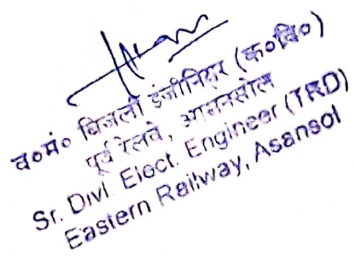 व०मं० बिजली इंजीनियर (क०वि०)
पूर्व रेलवे, आसनसोल
Sr. Divl. Elect. Engineer (TRD)
Eastern Railway, Asansol